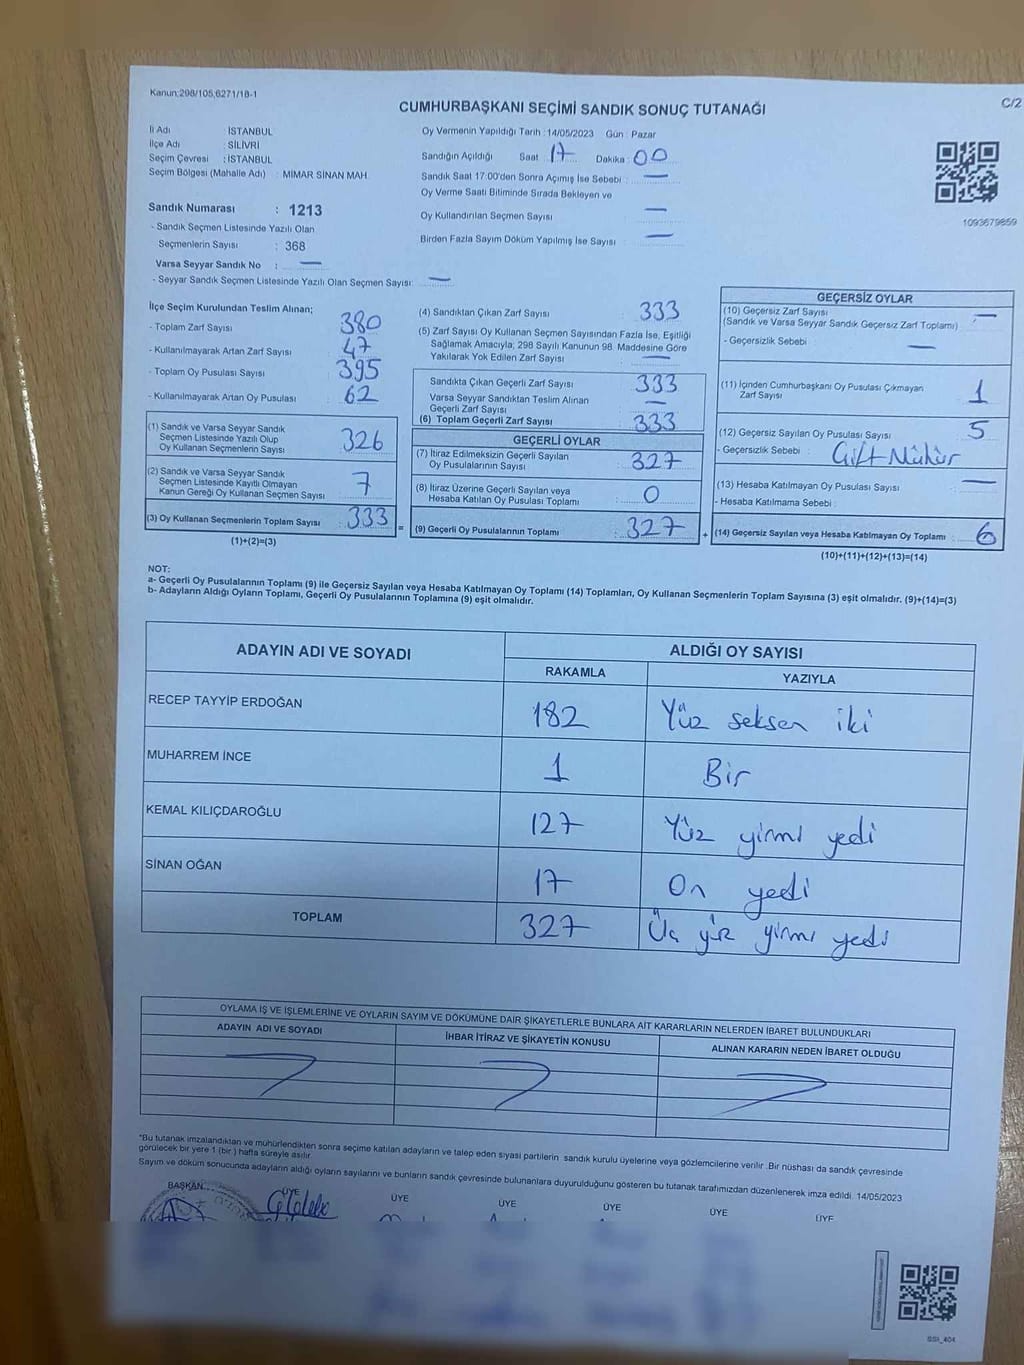 Kanun;298/105,6271/18-1
C/2
CUMHURBAŞKANI SEÇİMİ SANDIK SONUÇ TUTANAĞI
İl Adı : İSTANBUL
İlçe Adı : SİLİVRİ
Seçim Çevresi : İSTANBUL
Seçim Bölgesi (Mahalle Adı) : MİMAR SİNAN MAH.
Sandık Numarası : 1213
- Sandık Seçmen Listesinde Yazılı Olan
Seçmenlerin Sayısı : 368
Varsa Seyyar Sandık No : —
- Seyyar Sandık Seçmen Listesinde Yazılı Olan Seçmen Sayısı: —
Oy Vermenin Yapıldığı Tarih : 14/05/2023 Gün : Pazar
Sandığın Açıldığı Saat 17 Dakika : 00
Sandık Saat 17:00'den Sonra Açımış İse Sebebi : —
Oy Verme Saati Bitiminde Sırada Bekleyen ve
Oy Kullandırılan Seçmen Sayısı : —
Birden Fazla Sayım Döküm Yapılmış İse Sayısı : —
1093679859
İlçe Seçim Kurulundan Teslim Alınan;
- Toplam Zarf Sayısı : 380
- Kullanılmayarak Artan Zarf Sayısı : 47
- Toplam Oy Pusulası Sayısı : 395
- Kullanılmayarak Artan Oy Pusulası : 62
(1) Sandık ve Varsa Seyyar Sandık
Seçmen Listesinde Yazılı Olup
Oy Kullanan Seçmenlerin Sayısı : 326
(2) Sandık ve Varsa Seyyar Sandık
Seçmen Listesinde Kayıtlı Olmayan
Kanun Gereği Oy Kullanan Seçmen Sayısı : 7
(3) Oy Kullanan Seçmenlerin Toplam Sayısı : 333
(1)+(2)=(3)
(4) Sandıktan Çıkan Zarf Sayısı : 333
(5) Zarf Sayısı Oy Kullanan Seçmen Sayısından Fazla İse, Eşitliği
Sağlamak Amacıyla; 298 Sayılı Kanunun 98. Maddesine Göre
Yakılarak Yok Edilen Zarf Sayısı : —
Sandıkta Çıkan Geçerli Zarf Sayısı : 333
Varsa Seyyar Sandıktan Teslim Alınan
Geçerli Zarf Sayısı : —
(6) Toplam Geçerli Zarf Sayısı : 333
GEÇERLİ OYLAR
(7) İtiraz Edilmeksizin Geçerli Sayılan
Oy Pusulalarının Sayısı : 327
(8) İtiraz Üzerine Geçerli Sayılan veya
Hesaba Katılan Oy Pusulası Toplamı : 0
= (9) Geçerli Oy Pusulalarının Toplamı : 327 +
GEÇERSİZ OYLAR
(10) Geçersiz Zarf Sayısı : —
(Sandık ve Varsa Seyyar Sandık Geçersiz Zarf Toplamı)
- Geçersizlik Sebebi : —
(11) İçinden Cumhurbaşkanı Oy Pusulası Çıkmayan
Zarf Sayısı : 1
(12) Geçersiz Sayılan Oy Pusulası Sayısı : 5
- Geçersizlik Sebebi : Çift Mühür
(13) Hesaba Katılmayan Oy Pusulası Sayısı : —
- Hesaba Katılmama Sebebi :
(14) Geçersiz Sayılan veya Hesaba Katılmayan Oy Toplamı : 6
(10)+(11)+(12)+(13)=(14)
NOT:
a- Geçerli Oy Pusulalarının Toplamı (9) ile Geçersiz Sayılan veya Hesaba Katılmayan Oy Toplamı (14) Toplamları, Oy Kullanan Seçmenlerin Toplam Sayısına (3) eşit olmalıdır. (9)+(14)=(3)
b- Adayların Aldığı Oyların Toplamı, Geçerli Oy Pusulalarının Toplamına (9) eşit olmalıdır.
ADAYIN ADI VE SOYADI
ALDIĞI OY SAYISI
RAKAMLA YAZIYLA
RECEP TAYYİP ERDOĞAN 182 Yüz seksen iki
MUHARREM İNCE 1 Bir
KEMAL KILIÇDAROĞLU 127 Yüz yirmi yedi
SİNAN OĞAN 17 On yedi
TOPLAM 327 Üç yüz yirmi yedi
OYLAMA İŞ VE İŞLEMLERİNE VE OYLARIN SAYIM VE DÖKÜMÜNE DAİR ŞİKAYETLERLE BUNLARA AİT KARARLARIN NELERDEN İBARET BULUNDUKLARI
ADAYIN ADI VE SOYADI İHBAR İTİRAZ VE ŞİKAYETİN KONUSU ALINAN KARARIN NEDEN İBARET OLDUĞU
*Bu tutanak imzalandıktan ve mühürlendikten sonra seçime katılan adayların ve talep eden siyasi partilerin sandık kurulu üyelerine veya gözlemcilerine verilir. Bir nüshası da sandık çevresinde
görülecek bir yere 1 (bir) hafta süreyle asılır.
Sayım ve döküm sonucunda adayların aldığı oyların sayılarını ve bunların sandık çevresinde bulunanlara duyurulduğunu gösteren bu tutanak tarafımızdan düzenlenerek imza edildi. 14/05/2023
BAŞKAN ÜYE ÜYE ÜYE ÜYE ÜYE ÜYE
SSI_404